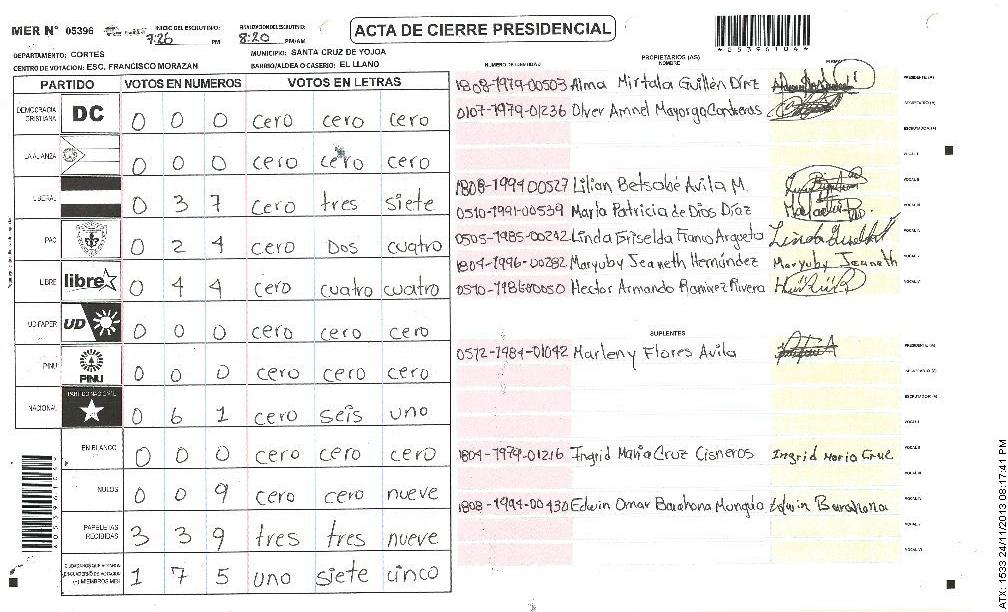 MER Nº 05396
INICIO DEL ESCRUTINIO: 7:26 PM
FINALIZACION ESCRUTINIO: 8:20 PM/AM
ACTA DE CIERRE PRESIDENCIAL
DEPARTAMENTO: CORTES
MUNICIPIO: SANTA CRUZ DE YOJOA
CENTRO DE VOTACION: ESC. FRANCISCO MORAZAN
BARRIO/ALDEA O CASERIO: EL LLANO
PARTIDO VOTOS EN NUMEROS VOTOS EN LETRAS
DEMOCRACIA CRISTIANA DC 0 0 0 cero cero cero
LA ALIANZA 0 0 0 cero cero cero
LIBERAL 0 3 7 cero tres siete
PAC 0 2 4 cero Dos cuatro
LIBRE libre 0 4 4 cero cuatro cuatro
UD FAPER UD 0 0 0 cero cero cero
PINU PINU 0 0 0 cero cero cero
NACIONAL PARTIDO NACIONAL 0 6 1 cero seis uno
EN BLANCO 0 0 0 cero cero cero
NULOS 0 0 9 cero cero nueve
PAPELETAS RECIBIDAS 3 3 9 tres tres nueve
1 7 5 uno siete cinco
NUMERO DE IDENTIDAD PROPIETARIOS (AS) NOMBRE FIRMA
1808-1979-00503 Alma Mirtala Guillén Díaz PRESIDENTE (A)
0107-1979-01236 Olver Amnel Mayorga Contreras SECRETARIO (A)
ESCRUTADOR (A)
VOCAL I
1808-1994 00527 Lilian Betsabé Avila M. VOCAL II
0510-1991-00539 Maria Patricia de Dios Díaz VOCAL III
0505-1985-00242 Linda Griselda Franco Argueta Linda VOCAL IV
1804-1996-00282 Maryuby Jeaneth Hernández Maryuby Jeaneth VOCAL V
Hector Armando Ramirez Rivera
SUPLENTES
0512-1984-01042 Marleny Flores Avila PRESIDENTE (A)
SECRETARIO (A)
ESCRUTADOR (A)
VOCAL I
1804-1979-01216 Ingrid Maria Cruz Cisneros Ingrid Maria Cruz VOCAL II
VOCAL III
1808-1994-00430 Edwin Omar Barahona Munguia Edwin Barahona VOCAL IV
VOCAL V
VOCAL VI
ATX: 1533 24/11/2013 08:17:41 PM